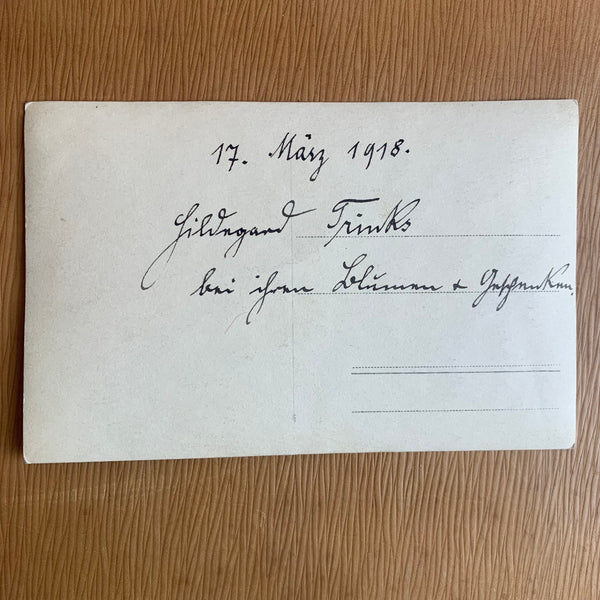 17. März 1918.
Hildegard Trinks
bei ihren Blumen + Geschenken.